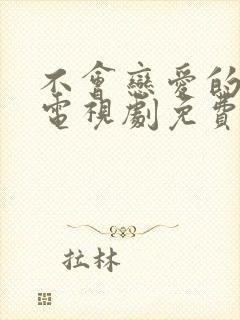 不會戀愛的
電視劇免費
拉林